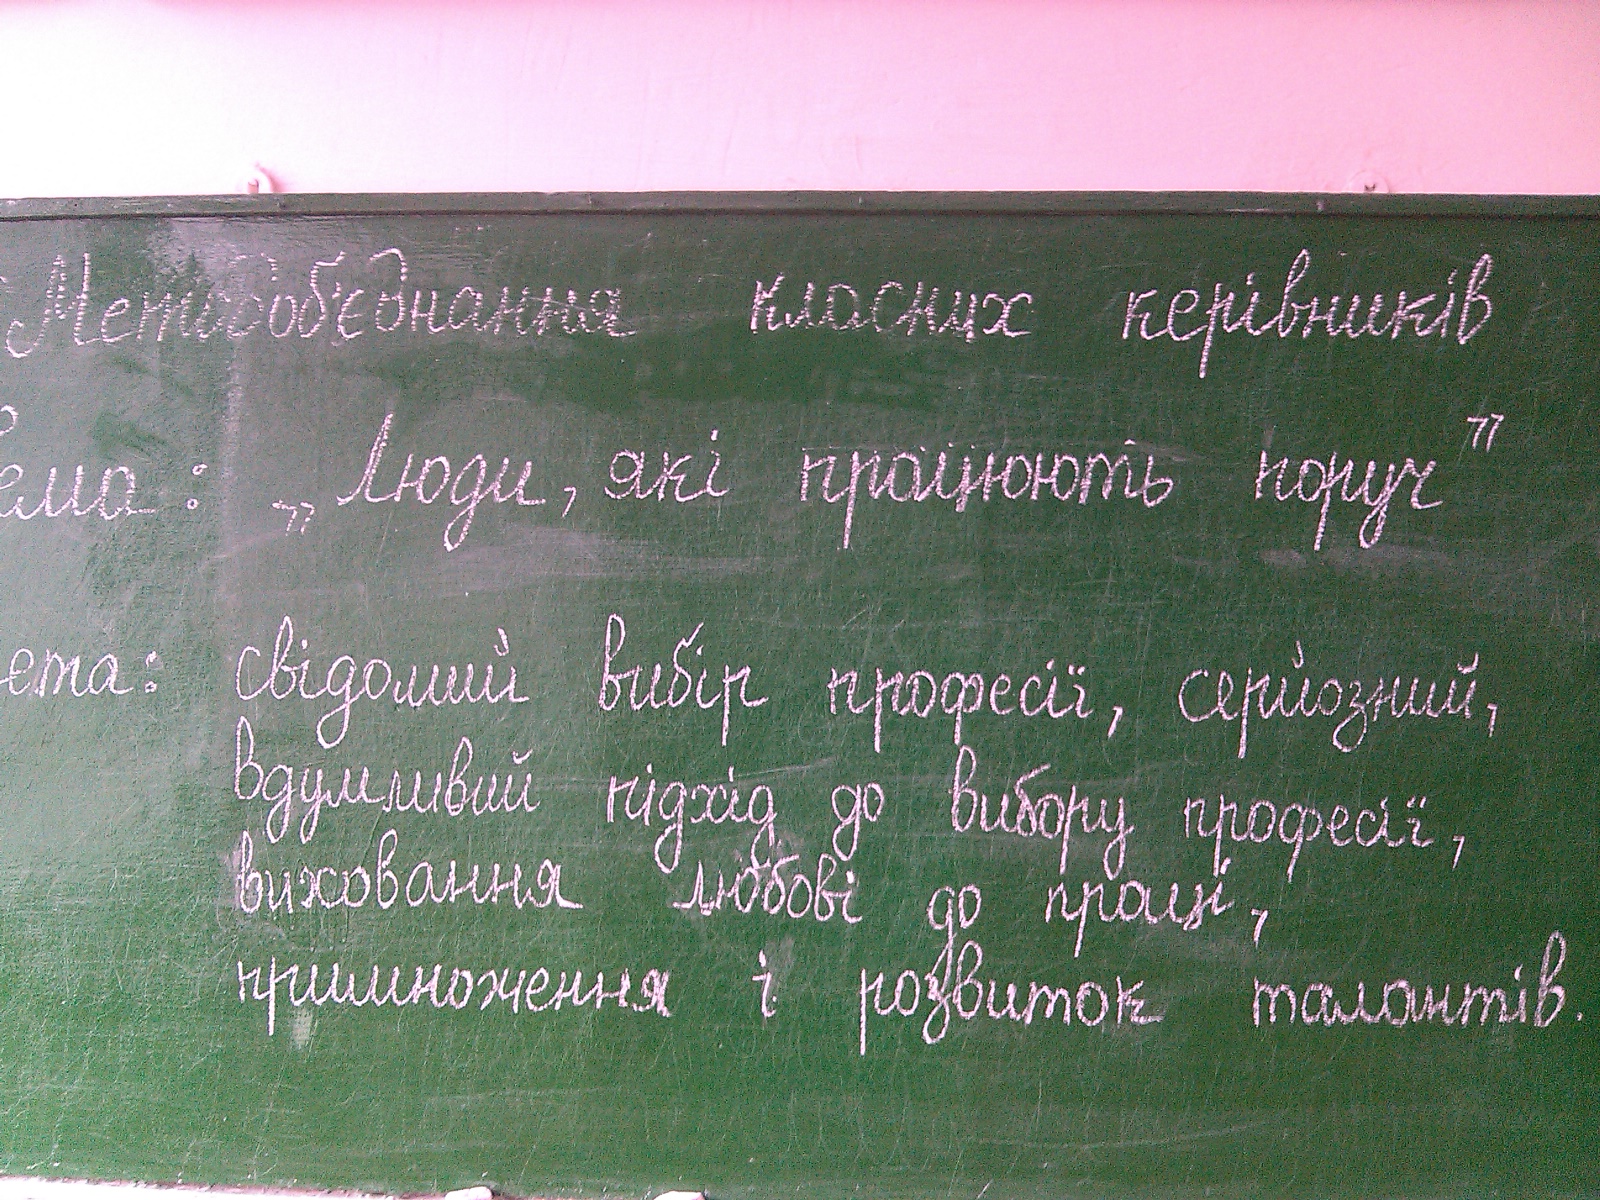 Методоб'єднання класних керівників
ема: „Люди, які працюють поруч”
ета: свідомий вибір професії, серйозний,
вдумливий підхід до вибору професії,
виховання любові до праці,
примноження і розвиток талантів.